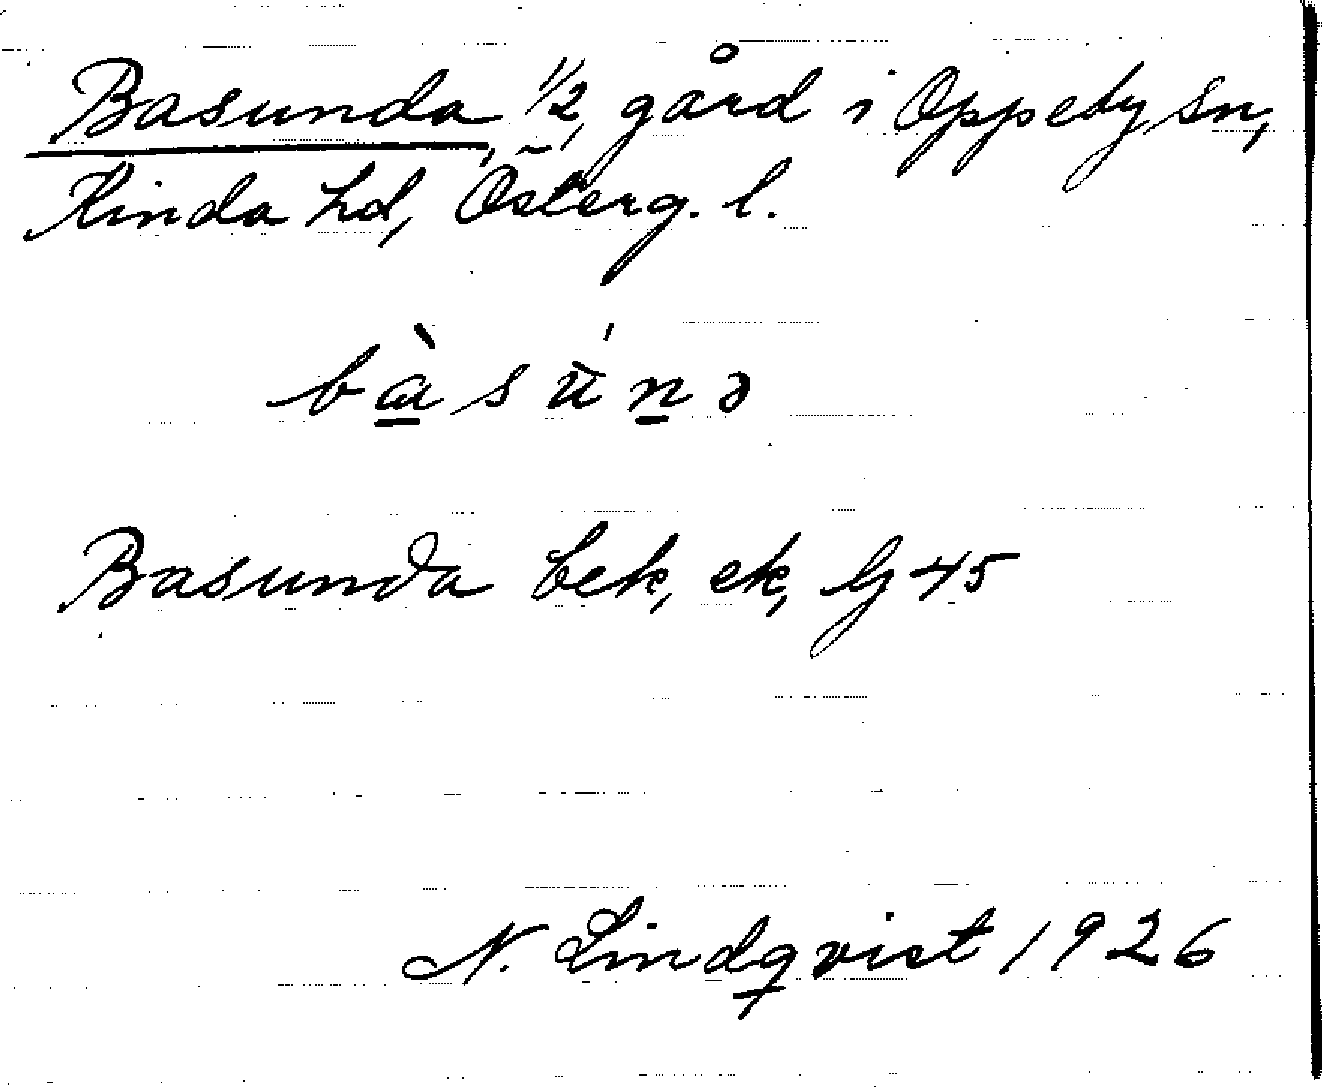 Basunda, 1/2, gård i Oppeby sn,
Kinda hd, Österg. l.
bàsúnə
Basunda bek, ek, lj 45
N. Lindqvist 1926